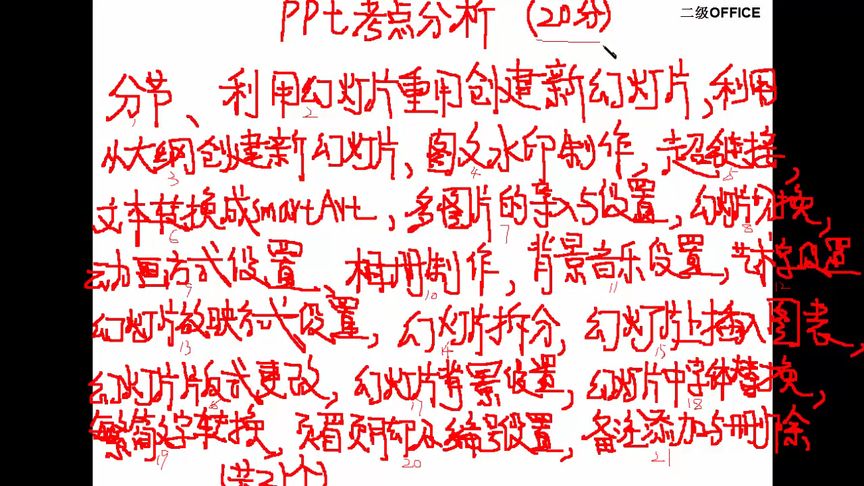 PPt考点分析 (20分)
二级OFFICE
分节、利用幻灯片重用创建新幻灯片,利用
2
从大纲创建新幻灯片、图文水印制作,超链接,
3 4 5
文本转换成SmartArt,多图片的插入与设置,幻灯片切换,
6 7 8
动画方式设置、相册制作,背景音乐设置,艺术字设置
9 10 11 12
幻灯片放映方式设置,幻灯片拆分,幻灯片上插入图表,
13 14 15
幻灯片版式更改,幻灯片背景设置,幻灯片中字体替换,
16 17 18
繁简文字转换,页眉页脚及编号设置,备注添加与删除
19 20 21
(共21个)